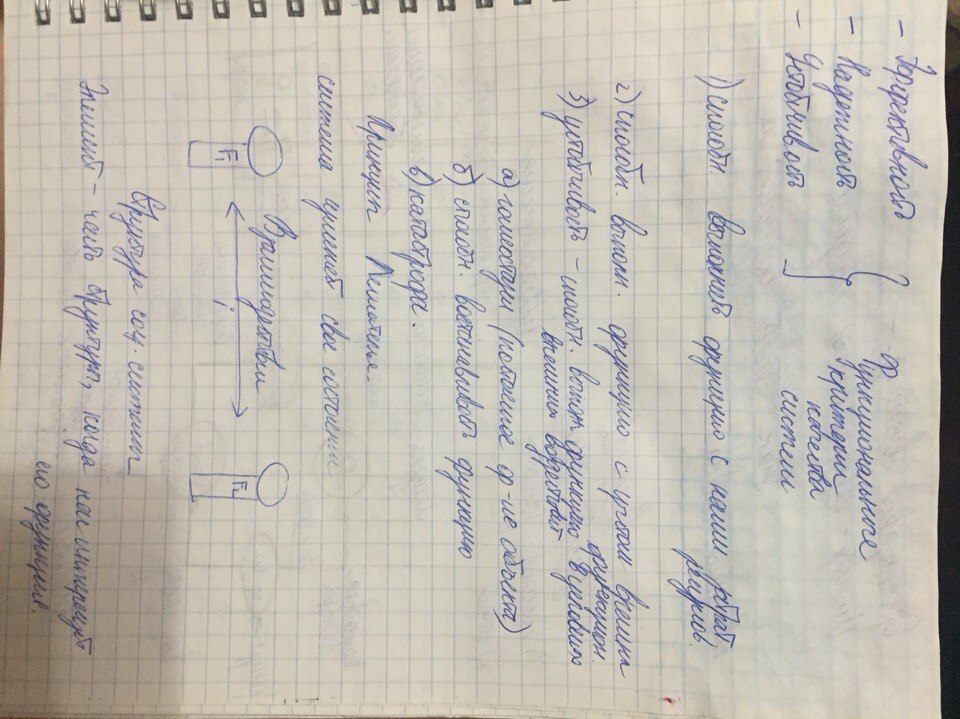 - Эффективность
- Надежность
- Устойчивость
Функциональные
критерии
качества
систем
1) способн. выполнять функцию с наим. затрат.
ресурсов.
2) способн. выполн. функцию с учетом времени
функцион.
3) устойчивость - способн. выполн. функцию в условиях
внешних воздействий
а) гомеостазы (постоянное ф-ие объекта)
б) способн. восстанавливать функцию
в) катастрофа.
Принцип Лешателье.
система сумеет свое состояние
Взаимодействия
F₁
F₂
Структура соц. системы
Элемент - часть структуры, когда нас интересует
его функция.